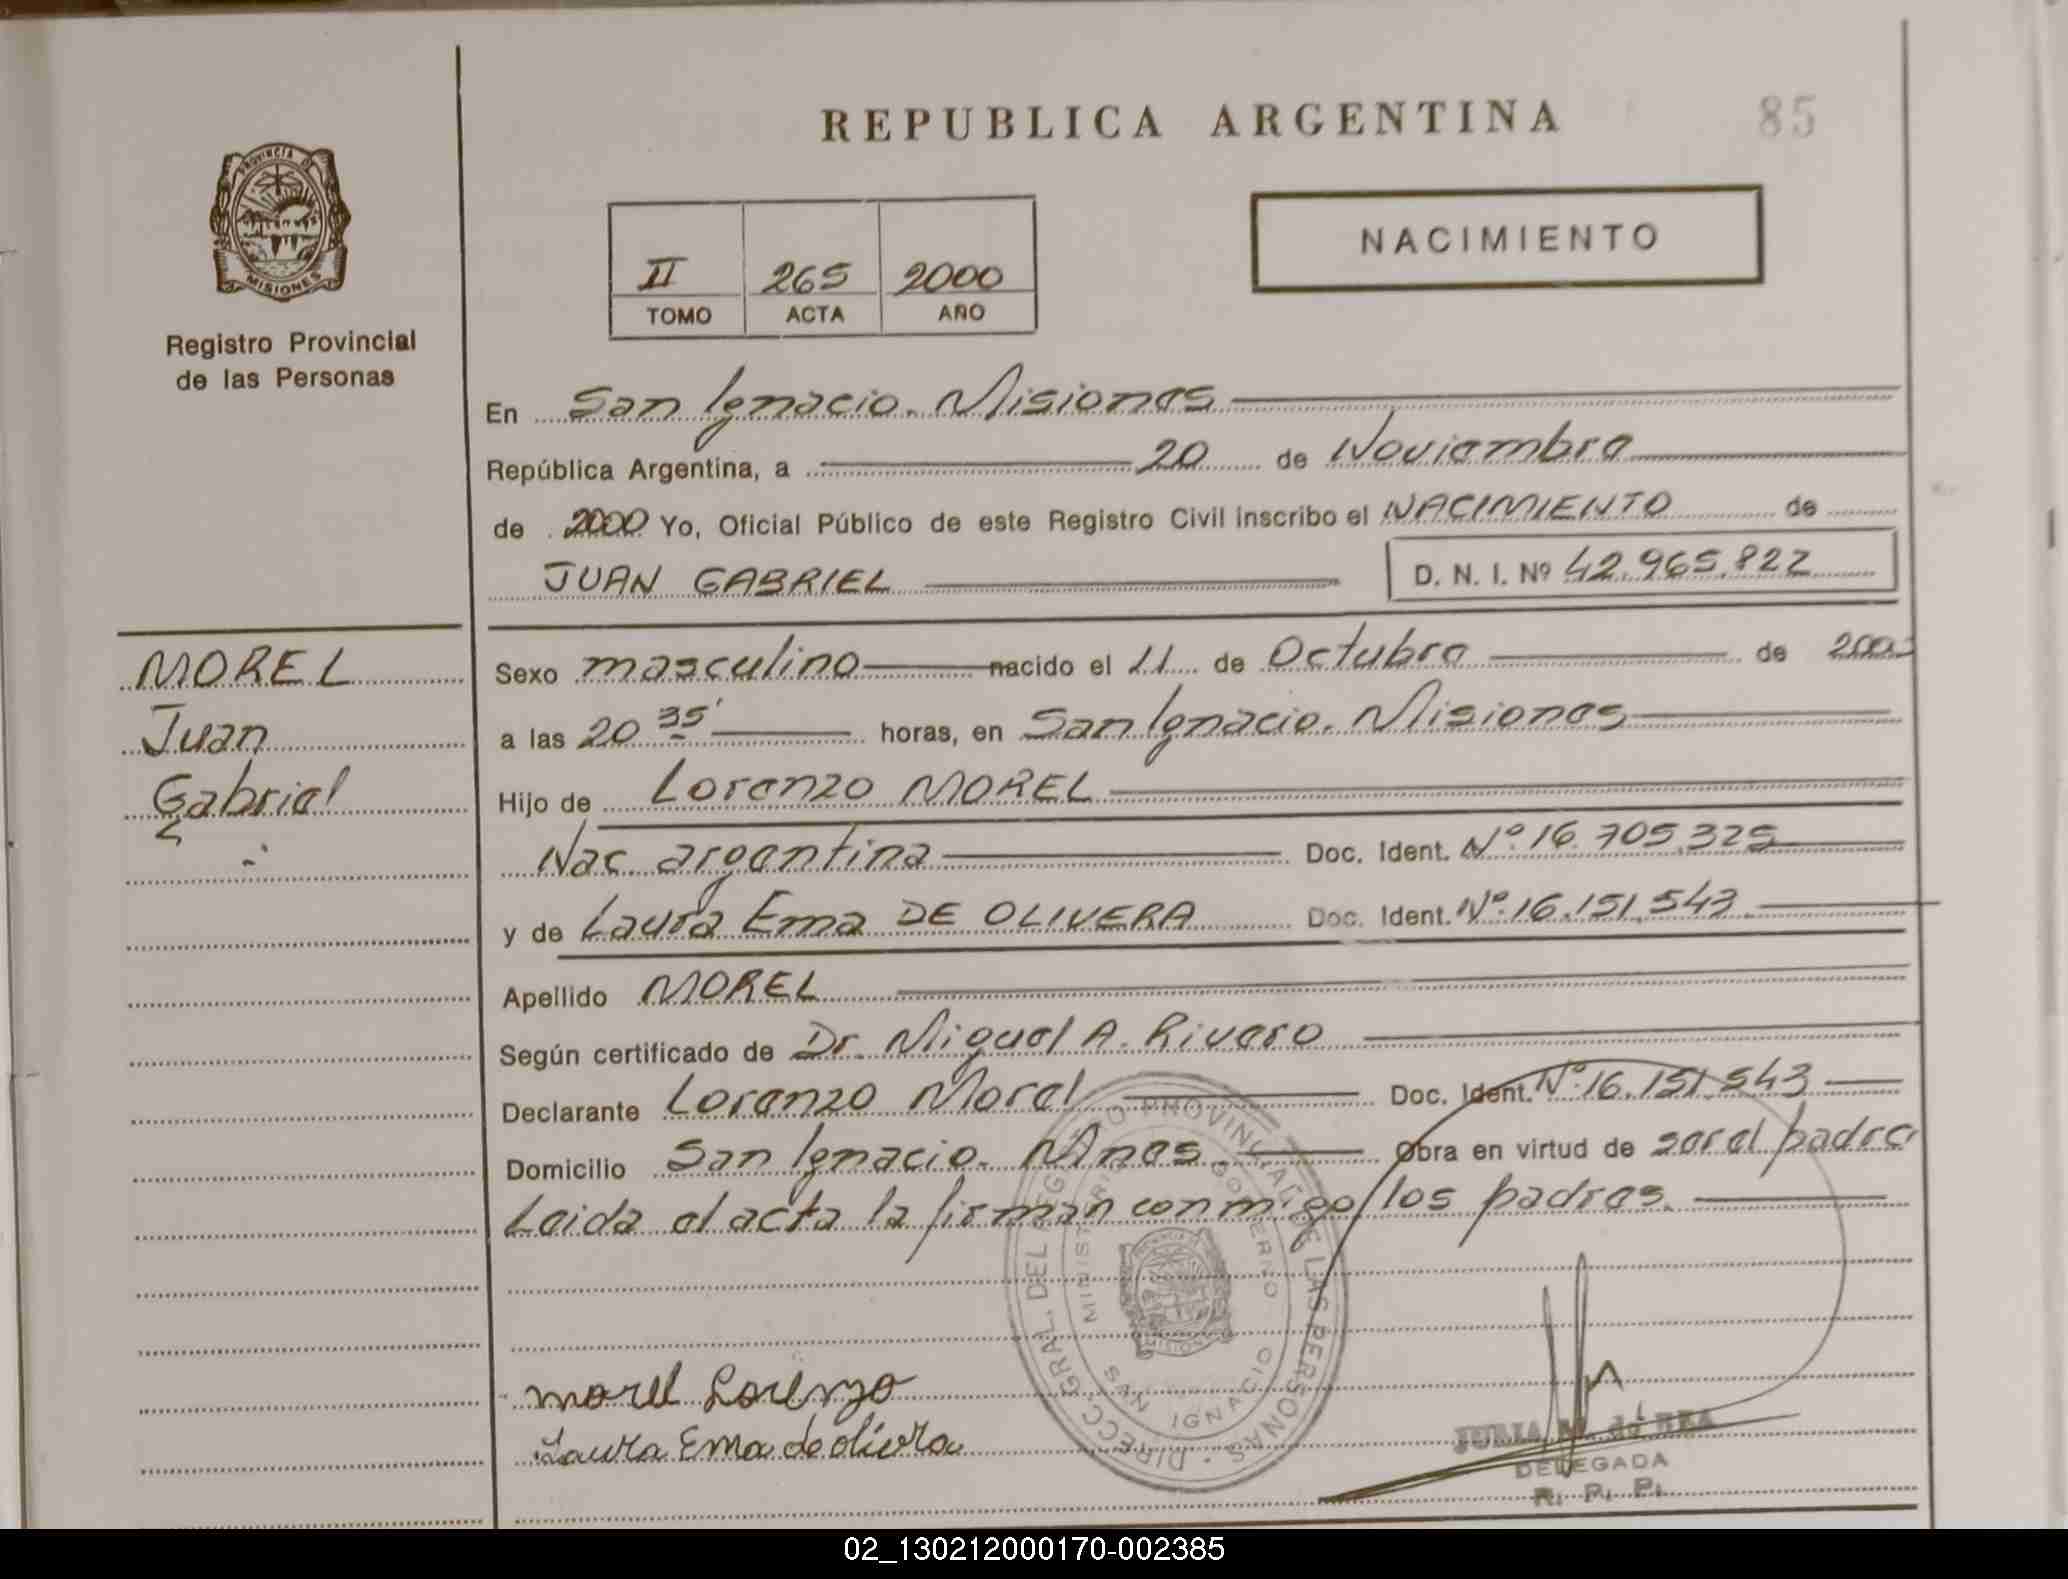 REPUBLICA ARGENTINA
85
PROVINCIA DE
MISIONES
Registro Provincial
de las Personas
II 265 2000
TOMO ACTA AÑO
NACIMIENTO
En San Ignacio. Misiones
República Argentina, a 20 de Noviembre
de 2000 Yo, Oficial Público de este Registro Civil inscribo el NACIMIENTO de
JUAN GABRIEL D. N. I. Nº 42.965.822
MOREL
Juan
Gabriel
Sexo masculino nacido el 11 de Octubre de 2000
a las 20 35' horas, en San Ignacio. Misiones
Hijo de Lorenzo MOREL
Nac. argentina Doc. Ident. Nº 16.705.325
y de Laura Ema DE OLIVERA Doc. Ident. Nº 16.151.543
Apellido MOREL
Según certificado de Dr. Miguel A. Rivero
Declarante Lorenzo Morel Doc. Ident. Nº 16.151.543
Domicilio San Ignacio. Mnes. Obra en virtud de ser el padre
Leida el acta la firman conmigo los padres.
DIRECC. GRAL. DEL REGISTRO PROVINCIAL DE LAS PERSONAS
MINISTERIO GOBIERNO
SAN IGNACIO
morel Lorenzo
Laura Ema de olivera
DELEGADA
R. P. P.
02_130212000170-002385